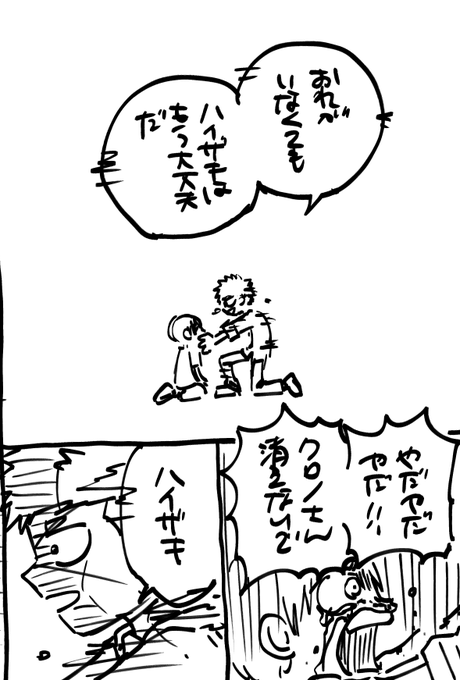 おれが
いなくっても
ハイザキは
もう大丈夫
だ
やだやだ
やだ!!
クロノさん
消えないで
ハイザキ